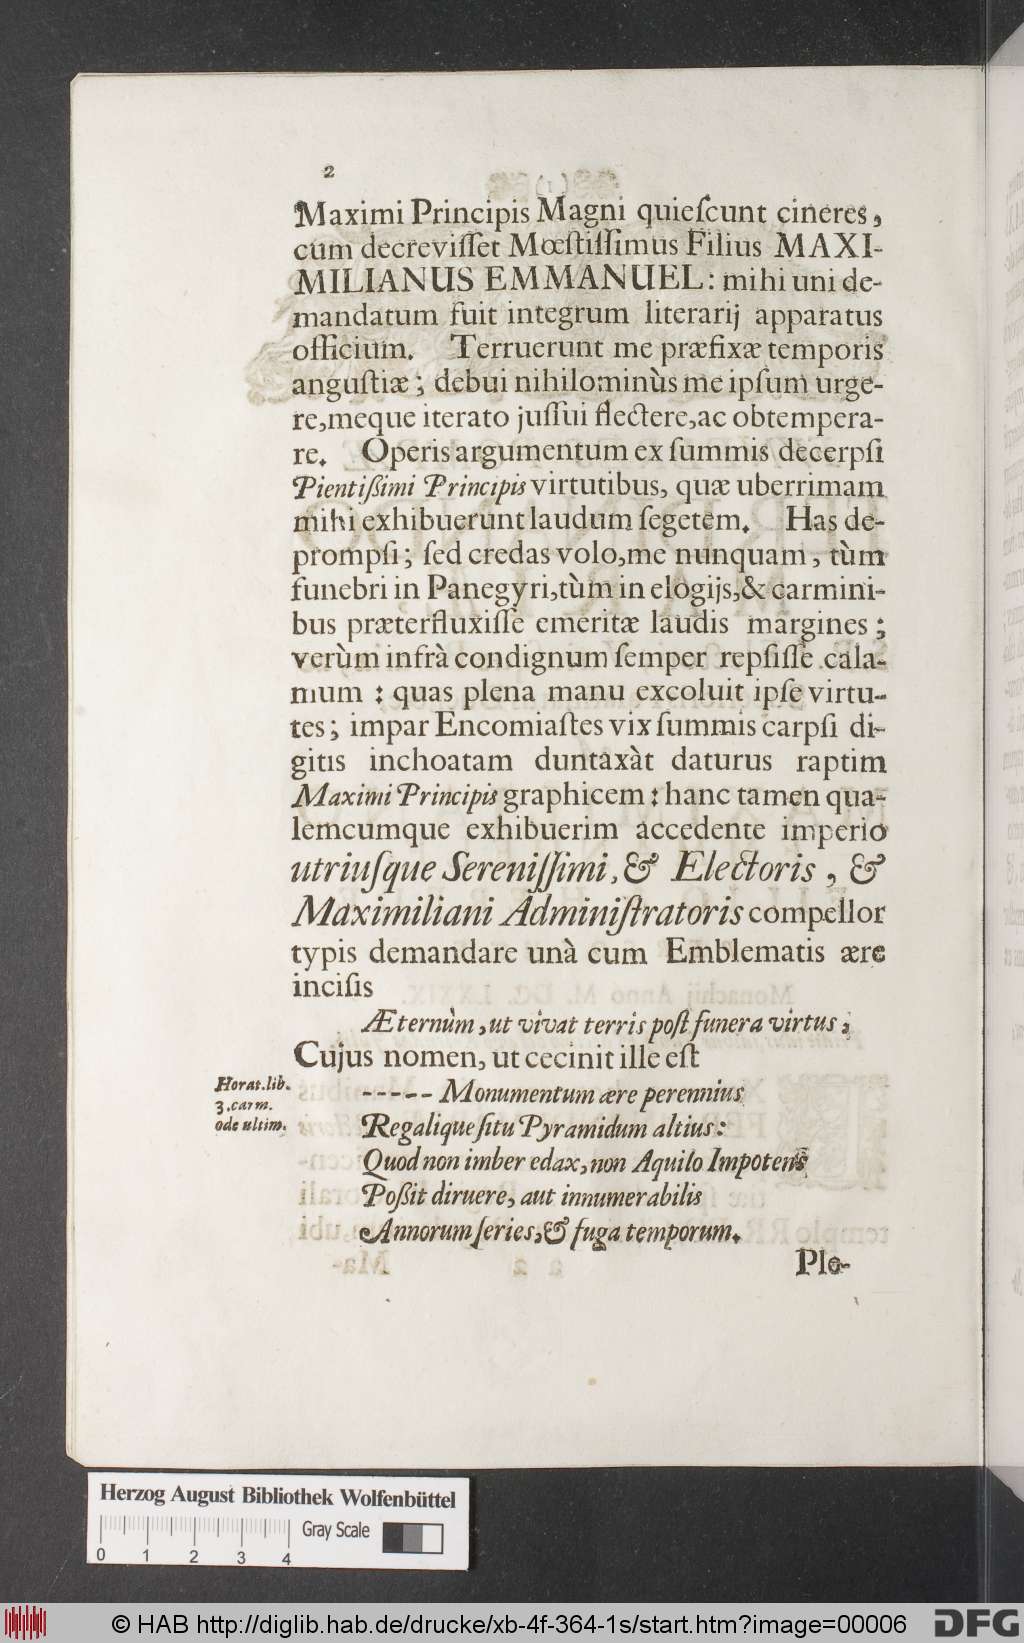 2
Maximi Principis Magni quieſcunt cineres,
cum decreviſſet Mœſtiſſimus Filius MAXI-
MILIANUS EMMANUEL: mihi uni de-
mandatum fuit integrum literarij apparatus
officium. Terruerunt me præfixæ temporis
anguſtiæ; debui nihilominùs me ipſum urge-
re,meque iterato juſſui flectere,ac obtempera-
re. Operis argumentum ex ſummis decerpſi
Pientißimi Principis virtutibus, quæ uberrimam
mihi exhibuerunt laudum ſegetem. Has de-
prompſi; ſed credas volo,me nunquam, tùm
funebri in Panegyri,tùm in elogijs,& carmini-
bus præterfluxiſſe emeritæ laudis margines;
verùm infrà condignum ſemper repſiſſe cala-
mum: quas plena manu excoluit ipſe virtu-
tes; impar Encomiaſtes vix ſummis carpſi di-
gitis inchoatam duntaxàt daturus raptim
Maximi Principis graphicem: hanc tamen qua-
lemcumque exhibuerim accedente imperio
utriuſque Sereniſſimi, & Electoris, &
Maximiliani Adminiſtratoris compellor
typis demandare unà cum Emblematis ære
inciſis
Æternùm, ut vivat terris poſt funera virtus;
Cujus nomen, ut cecinit ille eſt
Horat.lib.
3.carm.
ode ultim.
----- Monumentum ære perennius
Regalique ſitu Pyramidum altius:
Quod non imber edax, non Aquilo Impotens
Poßit diruere, aut innumerabilis
Annorum ſeries, & fuga temporum.
Ple-
Herzog August Bibliothek Wolfenbüttel
Gray Scale
0 1 2 3 4
© HAB http://diglib.hab.de/drucke/xb-4f-364-1s/start.htm?image=00006
DFG